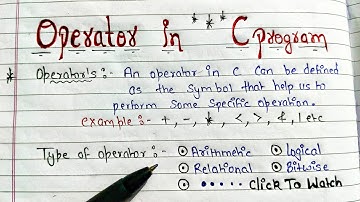 Operator in C program
* Operator's :- An operator in C can be defined
as the symbol that help us to
perform some specific operation.
example :- +, -, *, <, >, &, ! etc
Type of operator :- ⊙ Arithmetic ⊙ Logical
⊙ Relational ⊙ Bitwise
⊙ ••••• Click To Watch